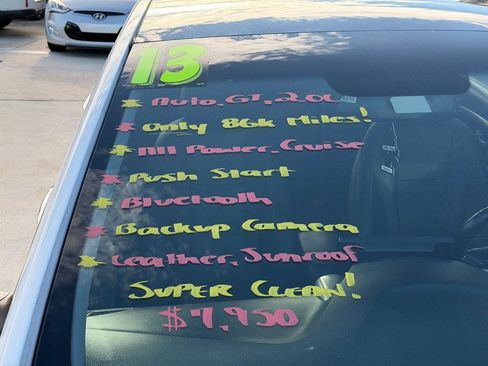 13
Auto, GT, 2.0L
Only 86k Miles!
All Power, Cruise
Push Start
Bluetooth
Backup Camera
Leather, Sunroof
SUPER CLEAN!
$7,950